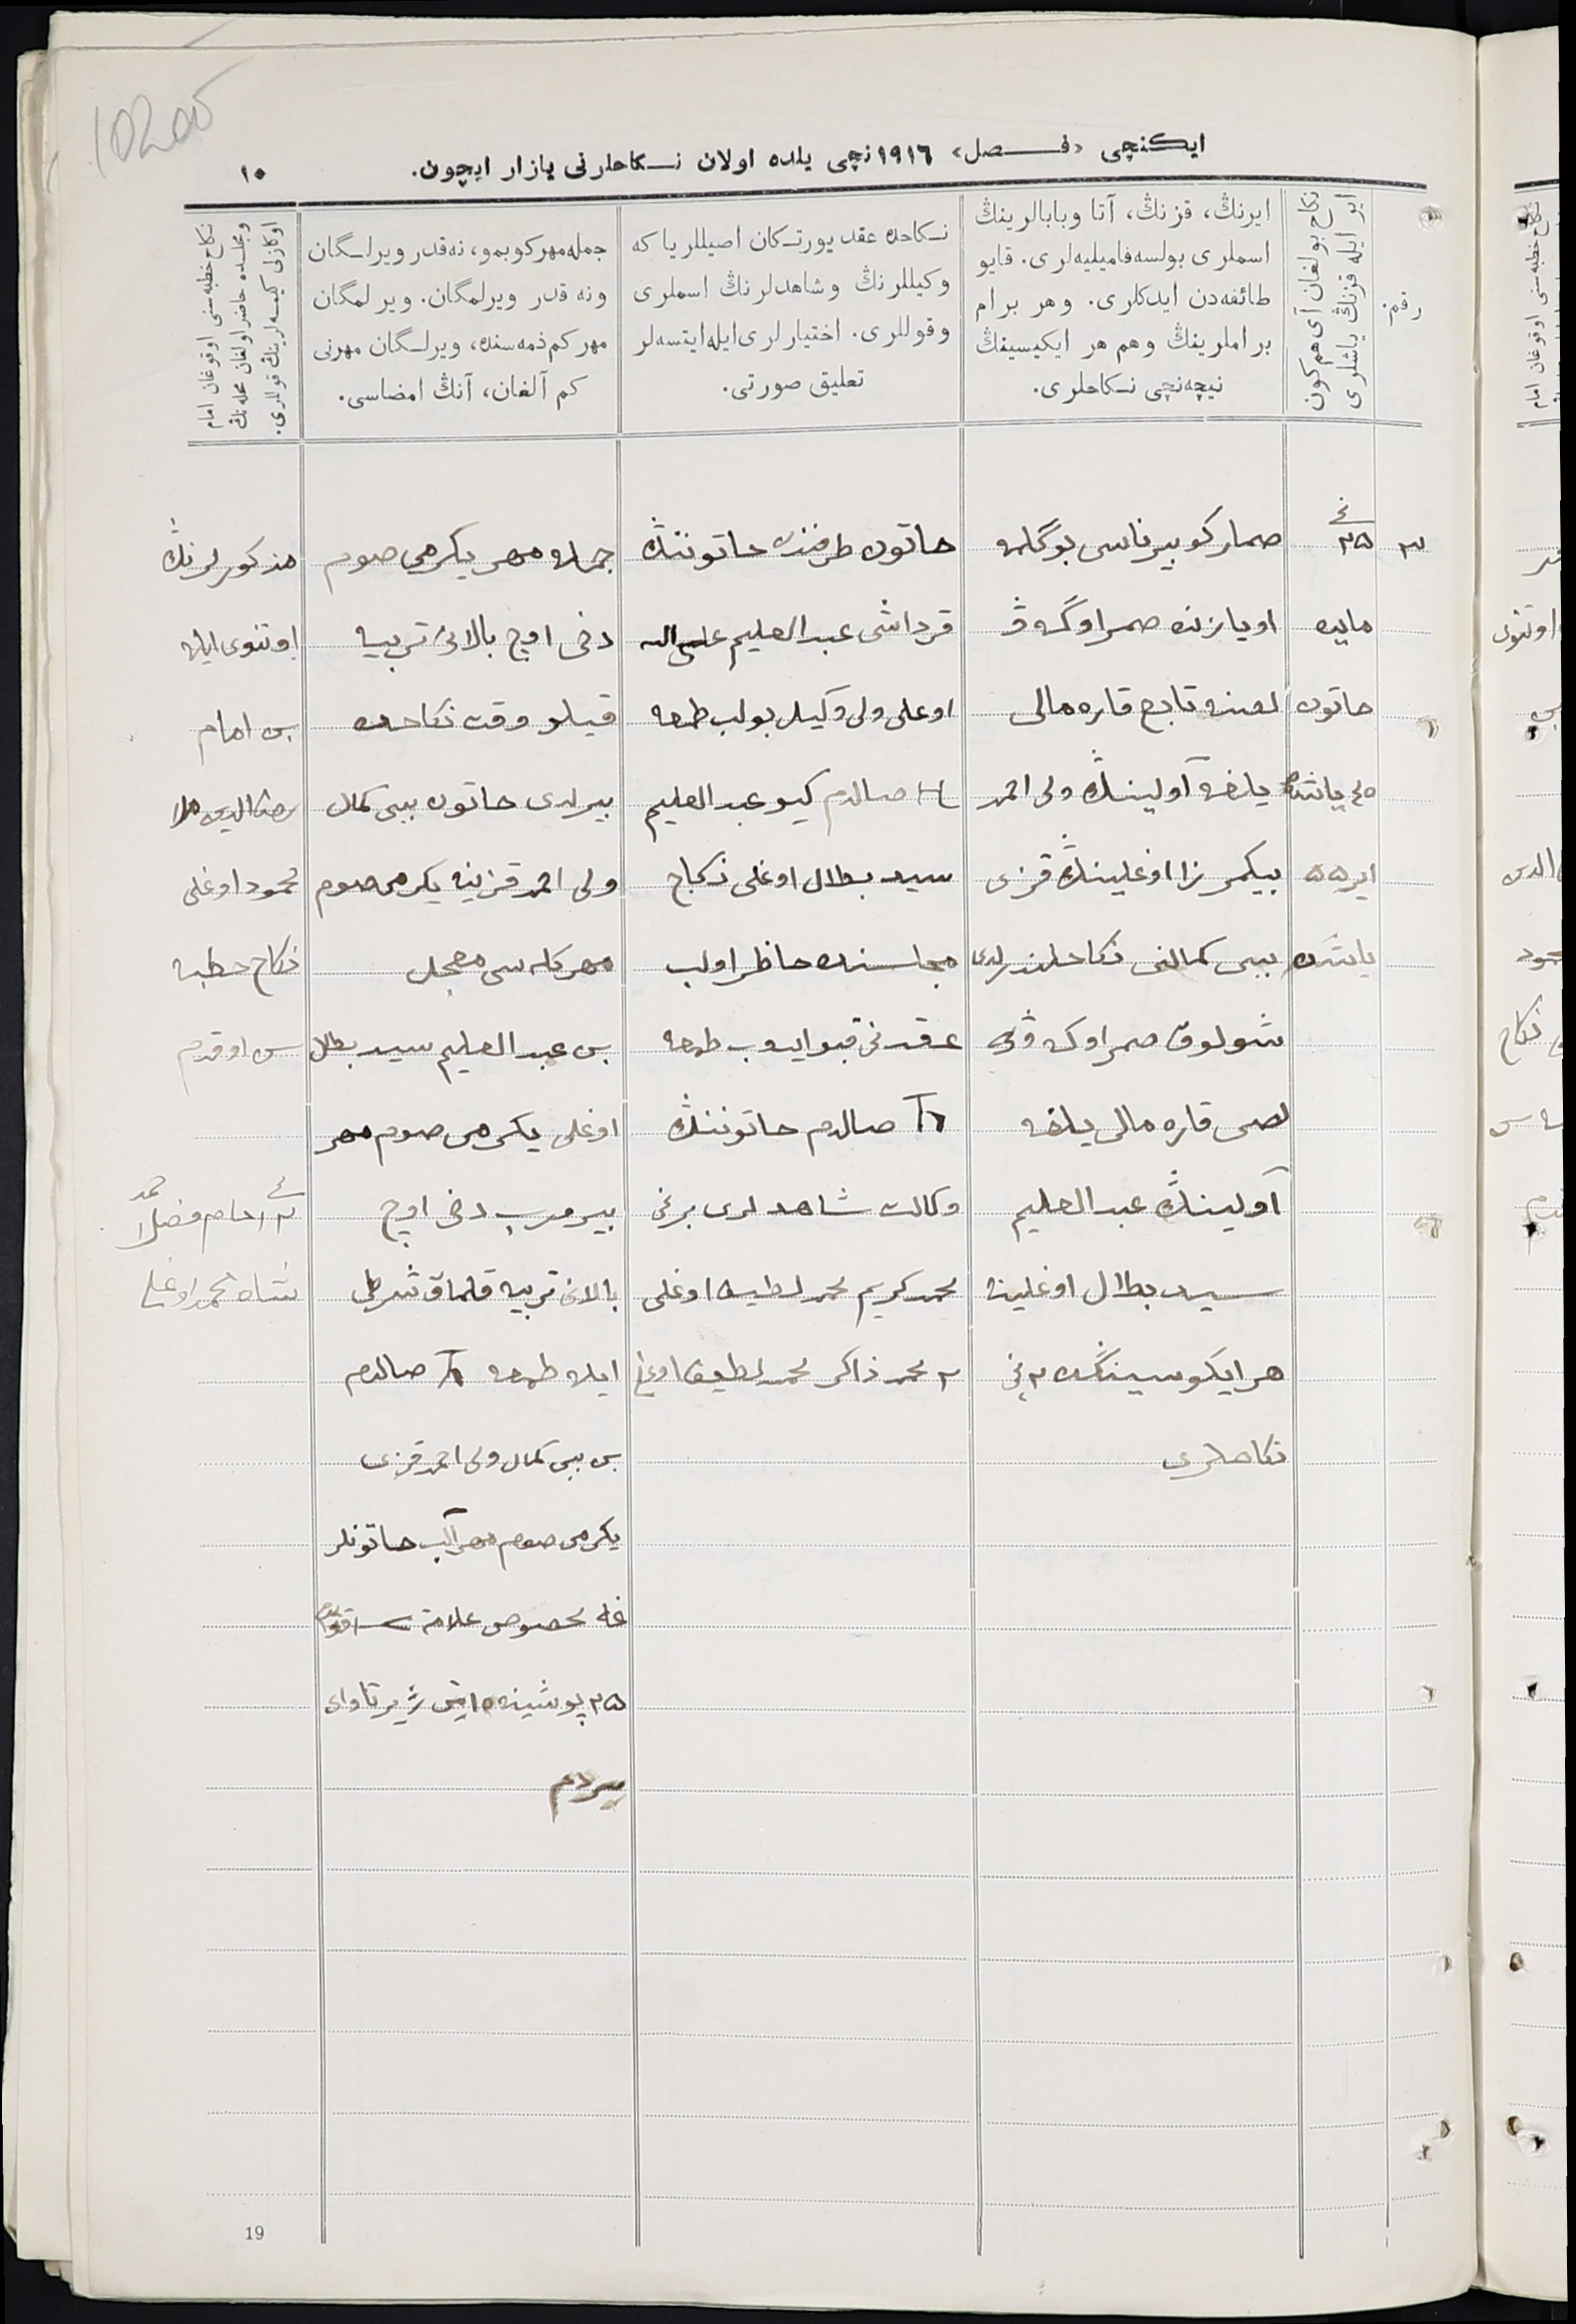 ایکنچی «فصل» ١٩١٦ نچی یلده اولان نکاحلرنی یازار ایچون.
١٠
رقم
نکاح بولغان آی هم کون
ایر ایله قزنڭ یاشلری
ایرنڭ، قزنڭ، آتا وبابالرینڭ
اسملری بولسه فامیلیه‌لری. قایو
طائفه‌دن ایدکلری. وهر برام
براملرینڭ وهم هر ایکیسینڭ
نیچه‌نچی نکاحلری.
نکاحده عقد یورتکان اصیللر یا که
وکیللرنڭ وشاهدلرنڭ اسملری
وقوللری. اختیارلری ایله ایتسه‌لر
تعلیق صورتی.
جمله مهر کوبمو، نه‌قدر ویرلگان
ونه قدر ویرلمگان. ویرلمگان
مهر کم ذمه‌سنده، ویرلگان مهرنی
کم آلغان، آنڭ امضاسی.
نکاح خطبه‌سنی اوقوغان امام
ومجلسده حاضر اولغان محله‌نڭ
اوکازلی کیسه‌لرینڭ قوللری.
٣
٢٥
مایده
خاتون
٤٥ یاشنده
ایر ٥٥
یاشنده
صمار کوبیرناسی بوگلمه
اویازنده صمراوگه‌ ڤ
لصینه تابع قاره مالی
یلغه آولینڭ ولی احمد
بیکمرزا اوغلینڭ قزی
بیبی کمالنی نکاحلندرلدی
شولوق صمراوکه‌ ڤی
لصی قاره مالی یلغه
آولینڭ عبد العلیم
سید بطال اوغلینه
هر ایکوسینڭده ٢ نچی
نکاحلری
خاتون طرفنده خاتوننڭ
قرداشی عبد العلیم
اوغلی ولی وکیل بولب طمغه
صالدم کیو عبد العلیم
سید بطال اوغلی نکاح
مجلسنده حاظر اولب
عقدنی قبو ایدوب طمغه
صالدم خاتوننڭ
وکالت شاهدلری برنچی
محمد کریم محمد لطیف اوغلی
٢ محمد ذاکر محمد لطیف اوغلی
جمله مهر یکرمی صوم
دخی اوچ بالانی تربیه
قیلو وقت نکاحده
بیرلدی خاتون بیبی کمال
ولی احمد قزینه یکرمی صوم
مهر کله‌سی معجل
بن عبد العلیم سید بطال
اوغلی یکرمی صوم مهر
بیرمرب دخی اوچ
بالانی تربیه قلماق شرطی
ایله طمغه صالدم
بن بیبی کمال ولی احمد قزی
یکرمی صوم مهر آلب خاتونلر
غه مخصوص علامة
٢٥
بیردم
مذکورلرنڭ
اوتنوی ایله
بن امام
محمود اوغلی
نکاح خطبه
سن اوقدم
شاه محمد اوغلی
19